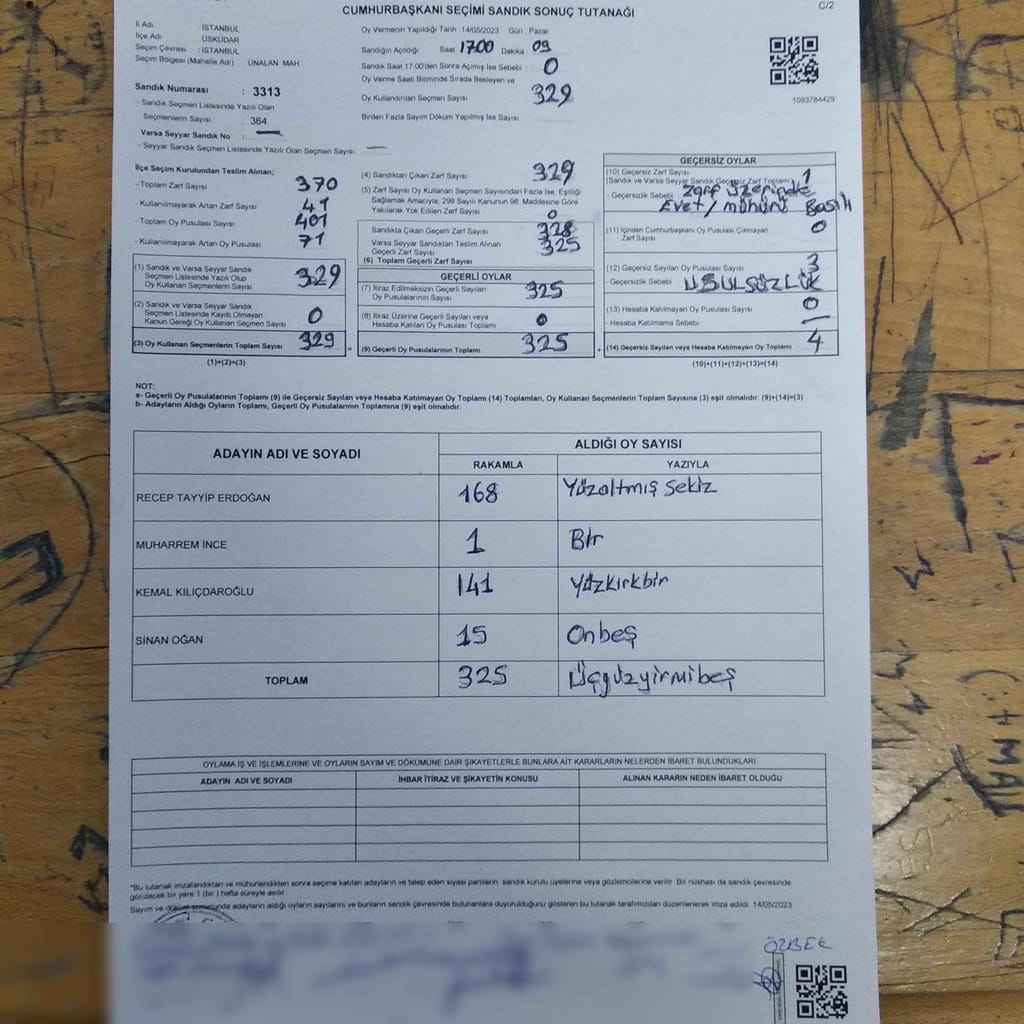 CUMHURBAŞKANI SEÇİMİ SANDIK SONUÇ TUTANAĞI
C/2
İl Adı : İSTANBUL
İlçe Adı : ÜSKÜDAR
Seçim Çevresi : İSTANBUL
Seçim Bölgesi (Mahalle Adı) : ÜNALAN MAH
Sandık Numarası : 3313
- Sandık Seçmen Listesinde Yazılı Olan
Seçmenlerin Sayısı : 364
Varsa Seyyar Sandık No : —
- Seyyar Seçmen Listesinde Yazılı Olan Seçmen Sayısı : —
Oy Vermenin Yapıldığı Tarih 14/05/2023 Gün : Pazar
Sandığın Açıldığı Saat 1700 Dakika : 09
Sandık Saat 17:00'den Sonra Açımış İse Sebebi : 0
Oy Verme Saati Bitiminde Sırada Bekleyen ve
Oy Kullandırılan Seçmen Sayısı 329
Birden Fazla Sayım Döküm Yapılmış İse Sayısı :
1093784429
İlçe Seçim Kurulundan Teslim Alınan;
- Toplam Zarf Sayısı : 370
- Kullanılmayarak Artan Zarf Sayısı : 41
- Toplam Oy Pusulası Sayısı : 401
- Kullanılmayarak Artan Oy Pusulası : 71
(1) Sandık ve Varsa Seyyar Sandık
Seçmen Listesinde Yazılı Olup
Oy Kullanan Seçmenlerin Sayısı : 329
(2) Sandık ve Varsa Seyyar Sandık
Seçmen Listesinde Kayıtlı Olmayan
Kanun Gereği Oy Kullanan Seçmen Sayısı : 0
(3) Oy Kullanan Seçmenlerin Toplam Sayısı : 329
(1)+(2)=(3)
(4) Sandıktan Çıkan Zarf Sayısı : 329
(5) Zarf Sayısı Oy Kullanan Seçmen Sayısından Fazla İse, Eşitliği
Sağlamak Amacıyla, 298 Sayılı Kanunun 98. Maddesine Göre
Yakılarak Yok Edilen Zarf Sayısı : 0
Sandıkta Çıkan Geçerli Zarf Sayısı : 328
Varsa Seyyar Sandıktan Teslim Alınan
Geçerli Zarf Sayısı : 325
(6) Toplam Geçerli Zarf Sayısı
GEÇERLİ OYLAR
(7) İtiraz Edilmeksizin Geçerli Sayılan
Oy Pusulalarının Sayısı : 325
(8) İtiraz Üzerine Geçerli Sayılan veya
Hesaba Katılan Oy Pusulası Toplamı : 0
(9) Geçerli Oy Pusulalarının Toplamı : 325
GEÇERSİZ OYLAR
(10) Geçersiz Zarf Sayısı : 1
(Sandık ve Varsa Seyyar Sandık Geçersiz Zarf Toplamı)
- Geçersizlik Sebebi : Zarf üzerinde
Evet/mühürü Basılı
(11) İçinden Cumhurbaşkanı Oy Pusulası Çıkmayan
Zarf Sayısı : 0
(12) Geçersiz Sayılan Oy Pusulası Sayısı : 3
- Geçersizlik Sebebi : USULSÜZLÜK
(13) Hesaba Katılmayan Oy Pusulası Sayısı : 0
- Hesaba Katılmama Sebebi : —
(14) Geçersiz Sayılan veya Hesaba Katılmayan Oy Toplamı : 4
(10)+(11)+(12)+(13)=(14)
NOT:
a- Geçerli Oy Pusulalarının Toplamı (9) ile Geçersiz Sayılan veya Hesaba Katılmayan Oy Toplamı (14) Toplamları, Oy Kullanan Seçmenlerin Toplam Sayısına (3) eşit olmalıdır. (9)+(14)=(3)
b- Adayların Aldığı Oyların Toplamı, Geçerli Oy Pusulalarının Toplamına (9) eşit olmalıdır.
ADAYIN ADI VE SOYADI
ALDIĞI OY SAYISI
RAKAMLA YAZIYLA
RECEP TAYYİP ERDOĞAN 168 Yüzaltmış sekiz
MUHARREM İNCE 1 Bir
KEMAL KILIÇDAROĞLU 141 Yüzkırkbir
SİNAN OĞAN 15 Onbeş
TOPLAM 325 Üçyüzyirmibeş
OYLAMA İŞ VE İŞLEMLERİNE VE OYLARIN SAYIM VE DÖKÜMÜNE DAİR ŞİKAYETLERLE BUNLARA AİT KARARLARIN NELERDEN İBARET BULUNDUKLARI
ADAYIN ADI VE SOYADI İHBAR İTİRAZ VE ŞİKAYETİN KONUSU ALINAN KARARIN NEDEN İBARET OLDUĞU
"Bu tutanak imzalandıktan ve mühürlendikten sonra seçime katılan adayların ve talep eden siyasi partilerin, sandık kurulu üyelerine veya gözlemcilerine verilir. Bir nüshası da sandık çevresinde
görülecek bir yere 1 (bir) hafta süreyle asılır.
Sayım ve döküm sonucunda adayların aldığı oyların sayılarını ve bunların sandık çevresinde bulunanlara duyurulduğunu gösteren bu tutanak tarafımızdan düzenlenerek imza edildi. 14/05/2023
ÖZBEK